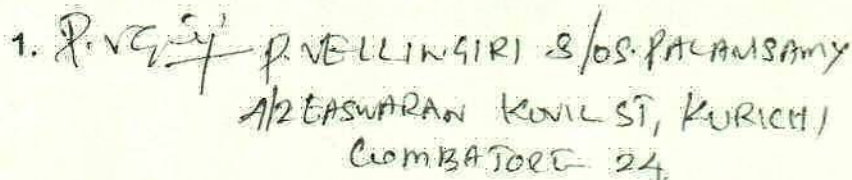 1. P. VELLINGIRI S/O S. PALANISAMY
4/2 EASWARAN KOVIL ST, KURICHI
COIMBATORE 24